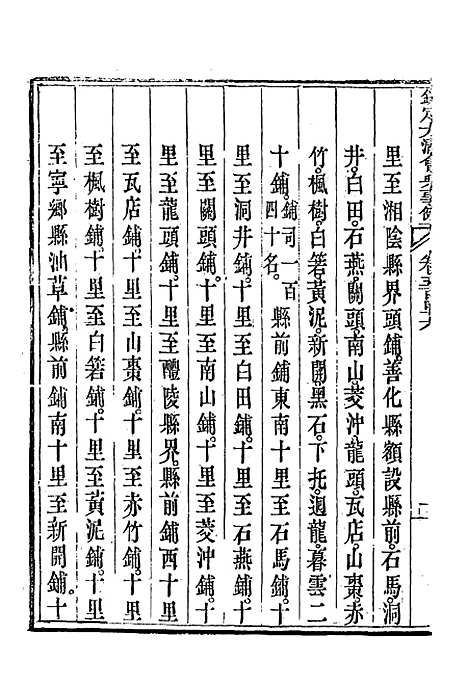 欽定大清會典事例
里至湘陰縣界頭鋪。善化縣額設縣前。石馬。洞
井。白田。石燕。關頭。南山。菱沖。龍頭。瓦店。山棗。赤
竹。楓樹。白箬。黃泥。新開。黑石。下托。迴龍。暮雲二
十鋪。鋪司一百四十名。縣前鋪東南十里至石馬鋪。十
里至洞井鋪。十里至白田鋪。十里至石燕鋪。十
里至關頭鋪。十里至南山鋪。十里至菱沖鋪。十
里至龍頭鋪。十里至醴陵縣界。縣前鋪西十里
至瓦店鋪。十里至山棗鋪。十里至赤竹鋪。十里
至楓樹鋪。十里至白箬鋪。十里至黃泥鋪。十里
至寧鄉縣油草鋪。縣前鋪南十里至新開鋪。十